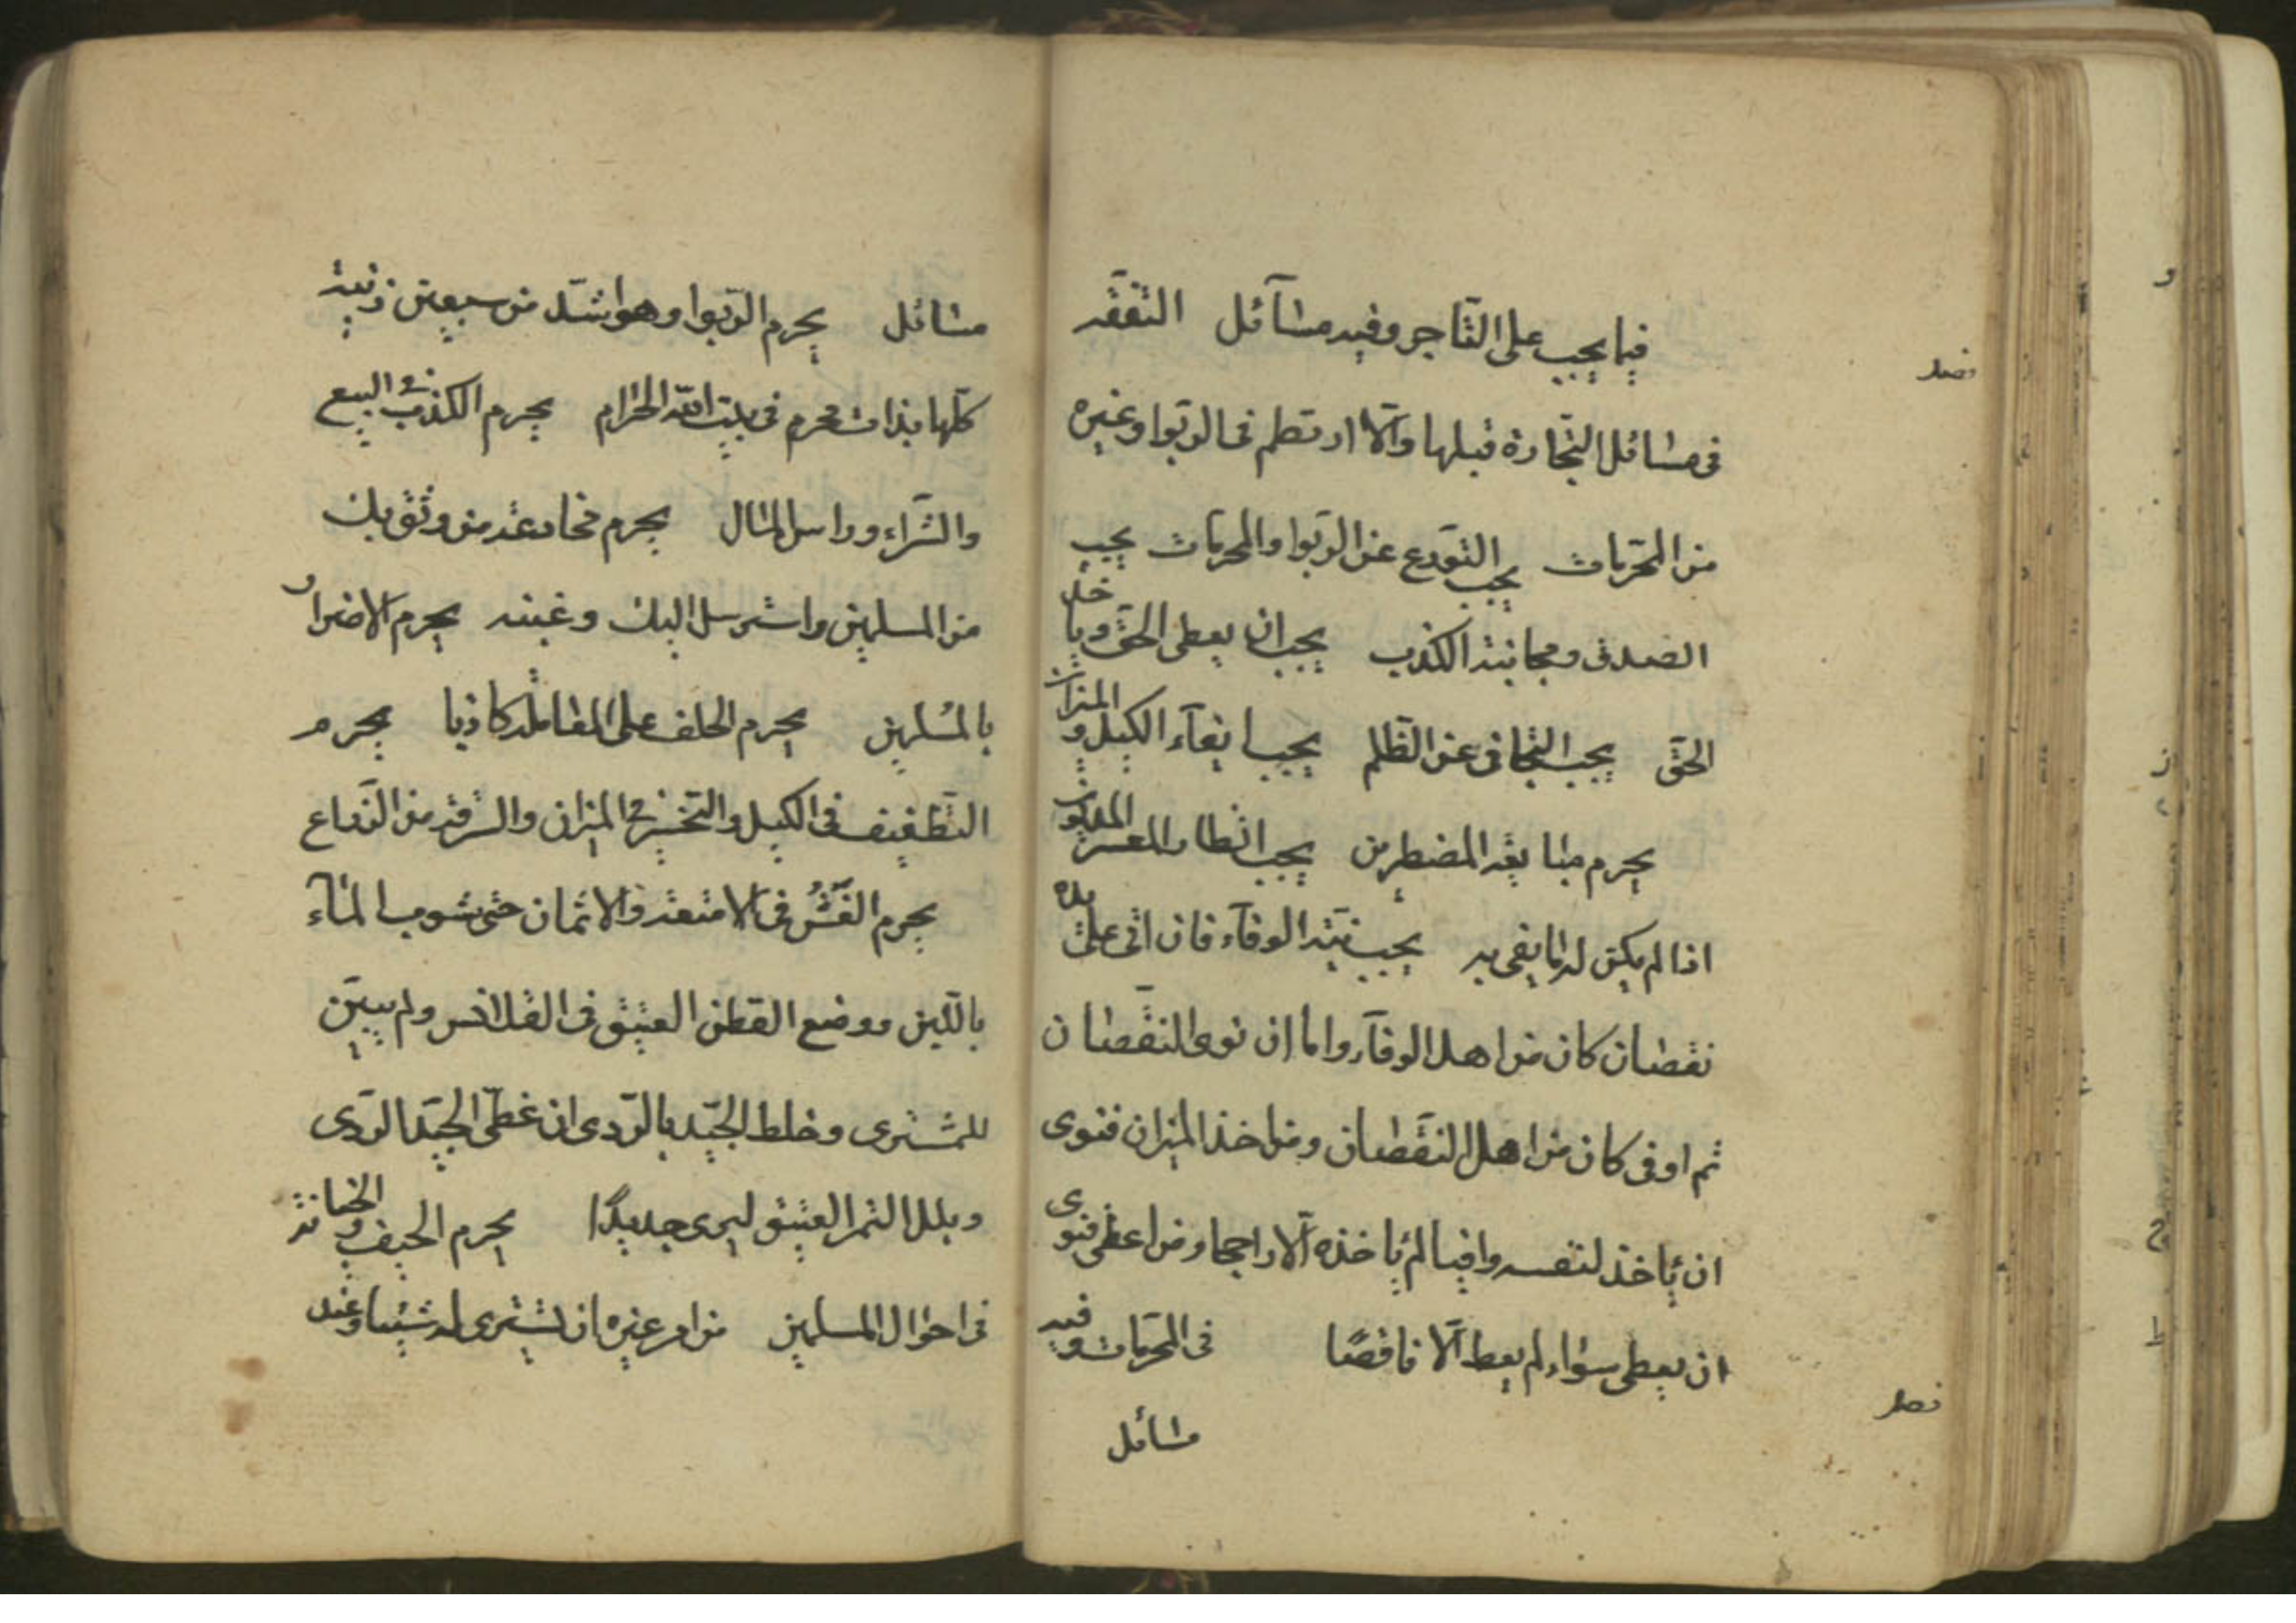 فصل
فيما يجب على التّاجر وفيه مسآئل التفقّه
فى مسائل التّجارة قبلها والّا ارتطم فى الربوا وغيره
من المحرّمات يجب التورّع عن الربوا والمحرمات يجب
الصدق ومجانبة الكذب يجب ان يعطى الحقّ وياخذ
الحقّ يجب التجافى عن الظلم يجب ايفآء الكيل والميزان
يحرم مبايعة المضطرين يجب انظار المعسر المديون
اذا لم يكن له ما يفى به يجب نيّة الوفآء فان اتى على يده
نقصان كان من اهل الوفآء واما ان نوى النقصان
ثم اوفى كان من اهل النقصان ومن اخذ الميزان فنوى
ان ياخذ لنفسه وافيا لم ياخذه الّا راجحا ومن اعطى فنوى
ان يعطى سواء لم يعط الّا ناقصًا فى المحرّمات وفيه
فصل
مسائل
مسائل يحرم الرّبوا وهو اشدّ من سبعين زنية
كلّها بذات محرم فى بيت الله الحرام يحرم الكذب فى البيع
والشّراء وراس المال يحرم مخادعة من وثق بك
من المسلمين واسترسل اليك وغبنه يحرم الاضرار
بالمسلمين يحرم الحلف على المقاملة كاذبا يحرم
التّطفيف فى الكيل والتخسير فى الميزان والسرقة من الذّراع
يحرم الغشّ فى الامتعة والاثمان حتى شوب المآء
باللّبن ووضع القطن العتيق فى القلانس ولم يبيّن
للمشترى وخلط الجيّد بالرّدى ان غطّى الجيّد الرّدى
وبلل التمر العتيق ليرى جديدًا يحرم الحيف والخيانة
فى احوال المسلمين من امر غيره ان يشترى له شيئا وعنده